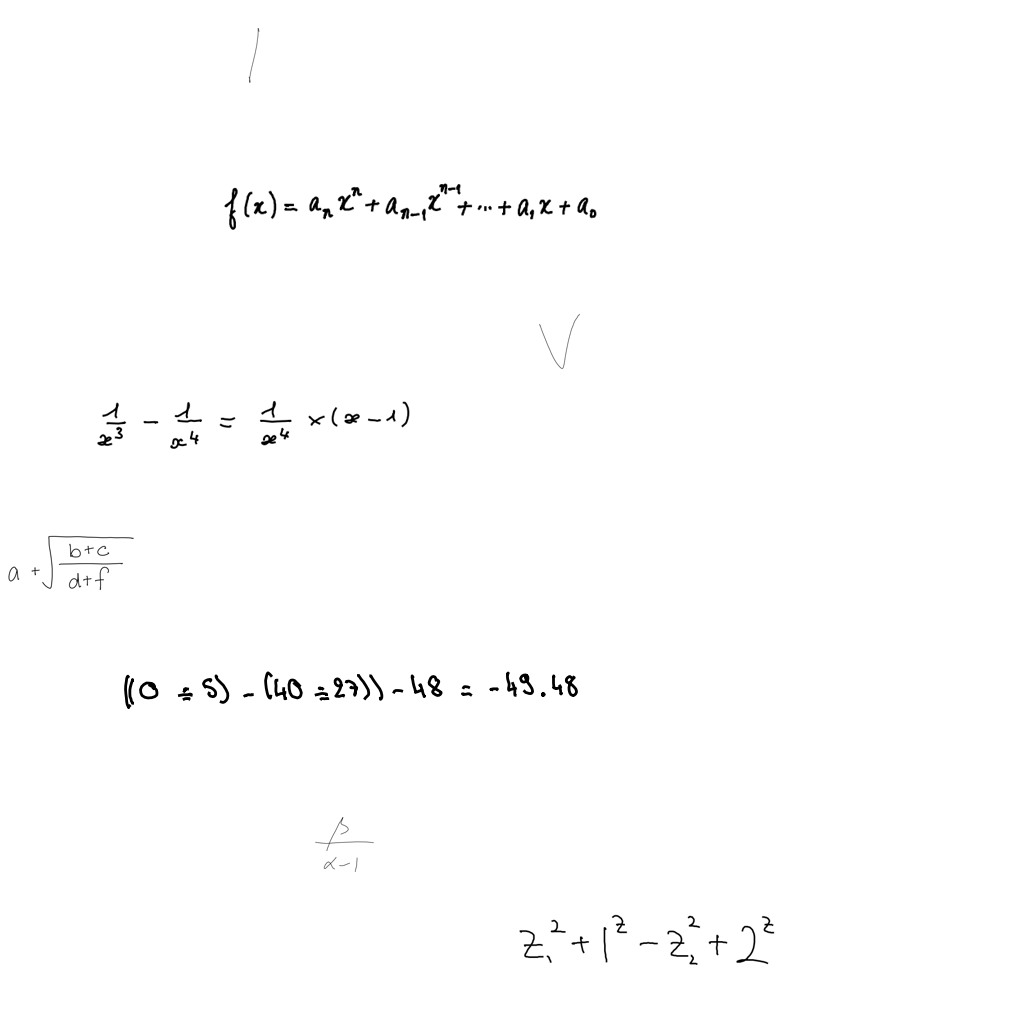 /
f(x) = aₙxⁿ + aₙ₋₁xⁿ⁻¹ + ... + a₁x + a₀
V
1/x³ - 1/x⁴ = 1/x⁴ × (x - 1)
a + √((b+c)/(d+f))
((0 ÷ 5) - (40 ÷ 27)) - 48 = -49.48
β/(α-1)
z₁² + 1ᶻ - z₂² + 2ᶻ